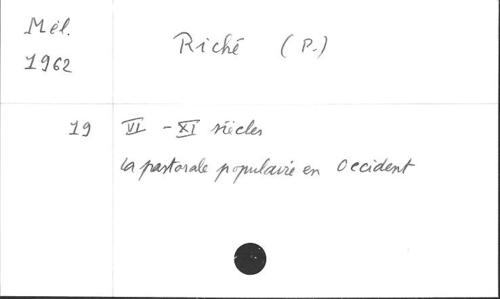 Mél.
1962
Riché (P.)
19
VI - XI siècles
la pastorale populaire en Occident